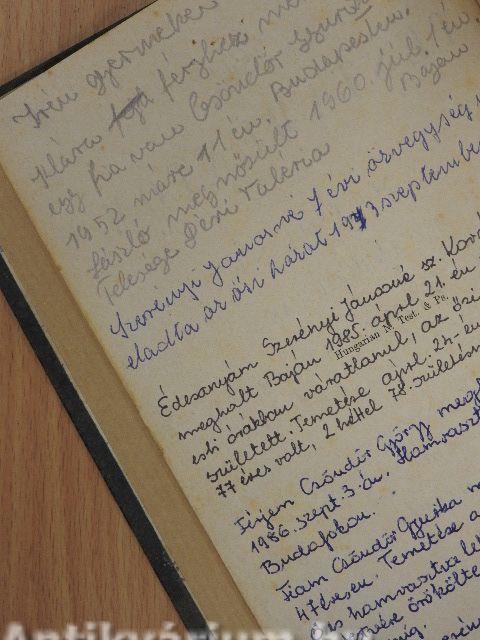 Irén gyermekei
Klára férjhez me
egy fia van Csöndör Gyuri
1952 márc 11 én. Budapesten.
László megnősült 1960 júl. 1 én
Bajám
felesége Péri Valéria
Szerényi Jánosné 7 évi özvegység
eladta az ősi házat 1973 szeptembe
Édesanyám Szerényi Jánosné sz. Ková
meghalt Baján 1985. april 21. én
Hungarian N. Test. & Ps.
esti órákban váratlanul, az ősi
született. Temetése april. 24. én
77 éves volt, 2 héttel 78. születésn
Férjem Csöndör György megh
1986. szept. 3. án. Hamvaszt
Budafokon.
Fiam Csöndör Gyurka m
47 évesen. Temetése a
és hamvasztva let
örökölte
Antikvárium.hu